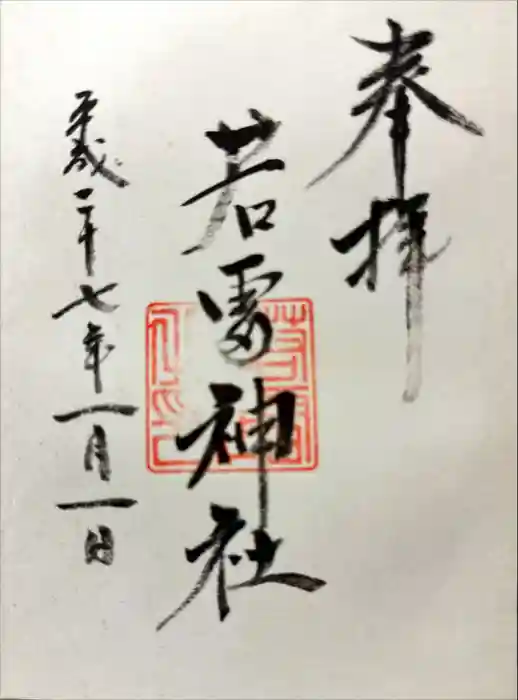 奉拝
若雷神社
平成二十七年一月一日